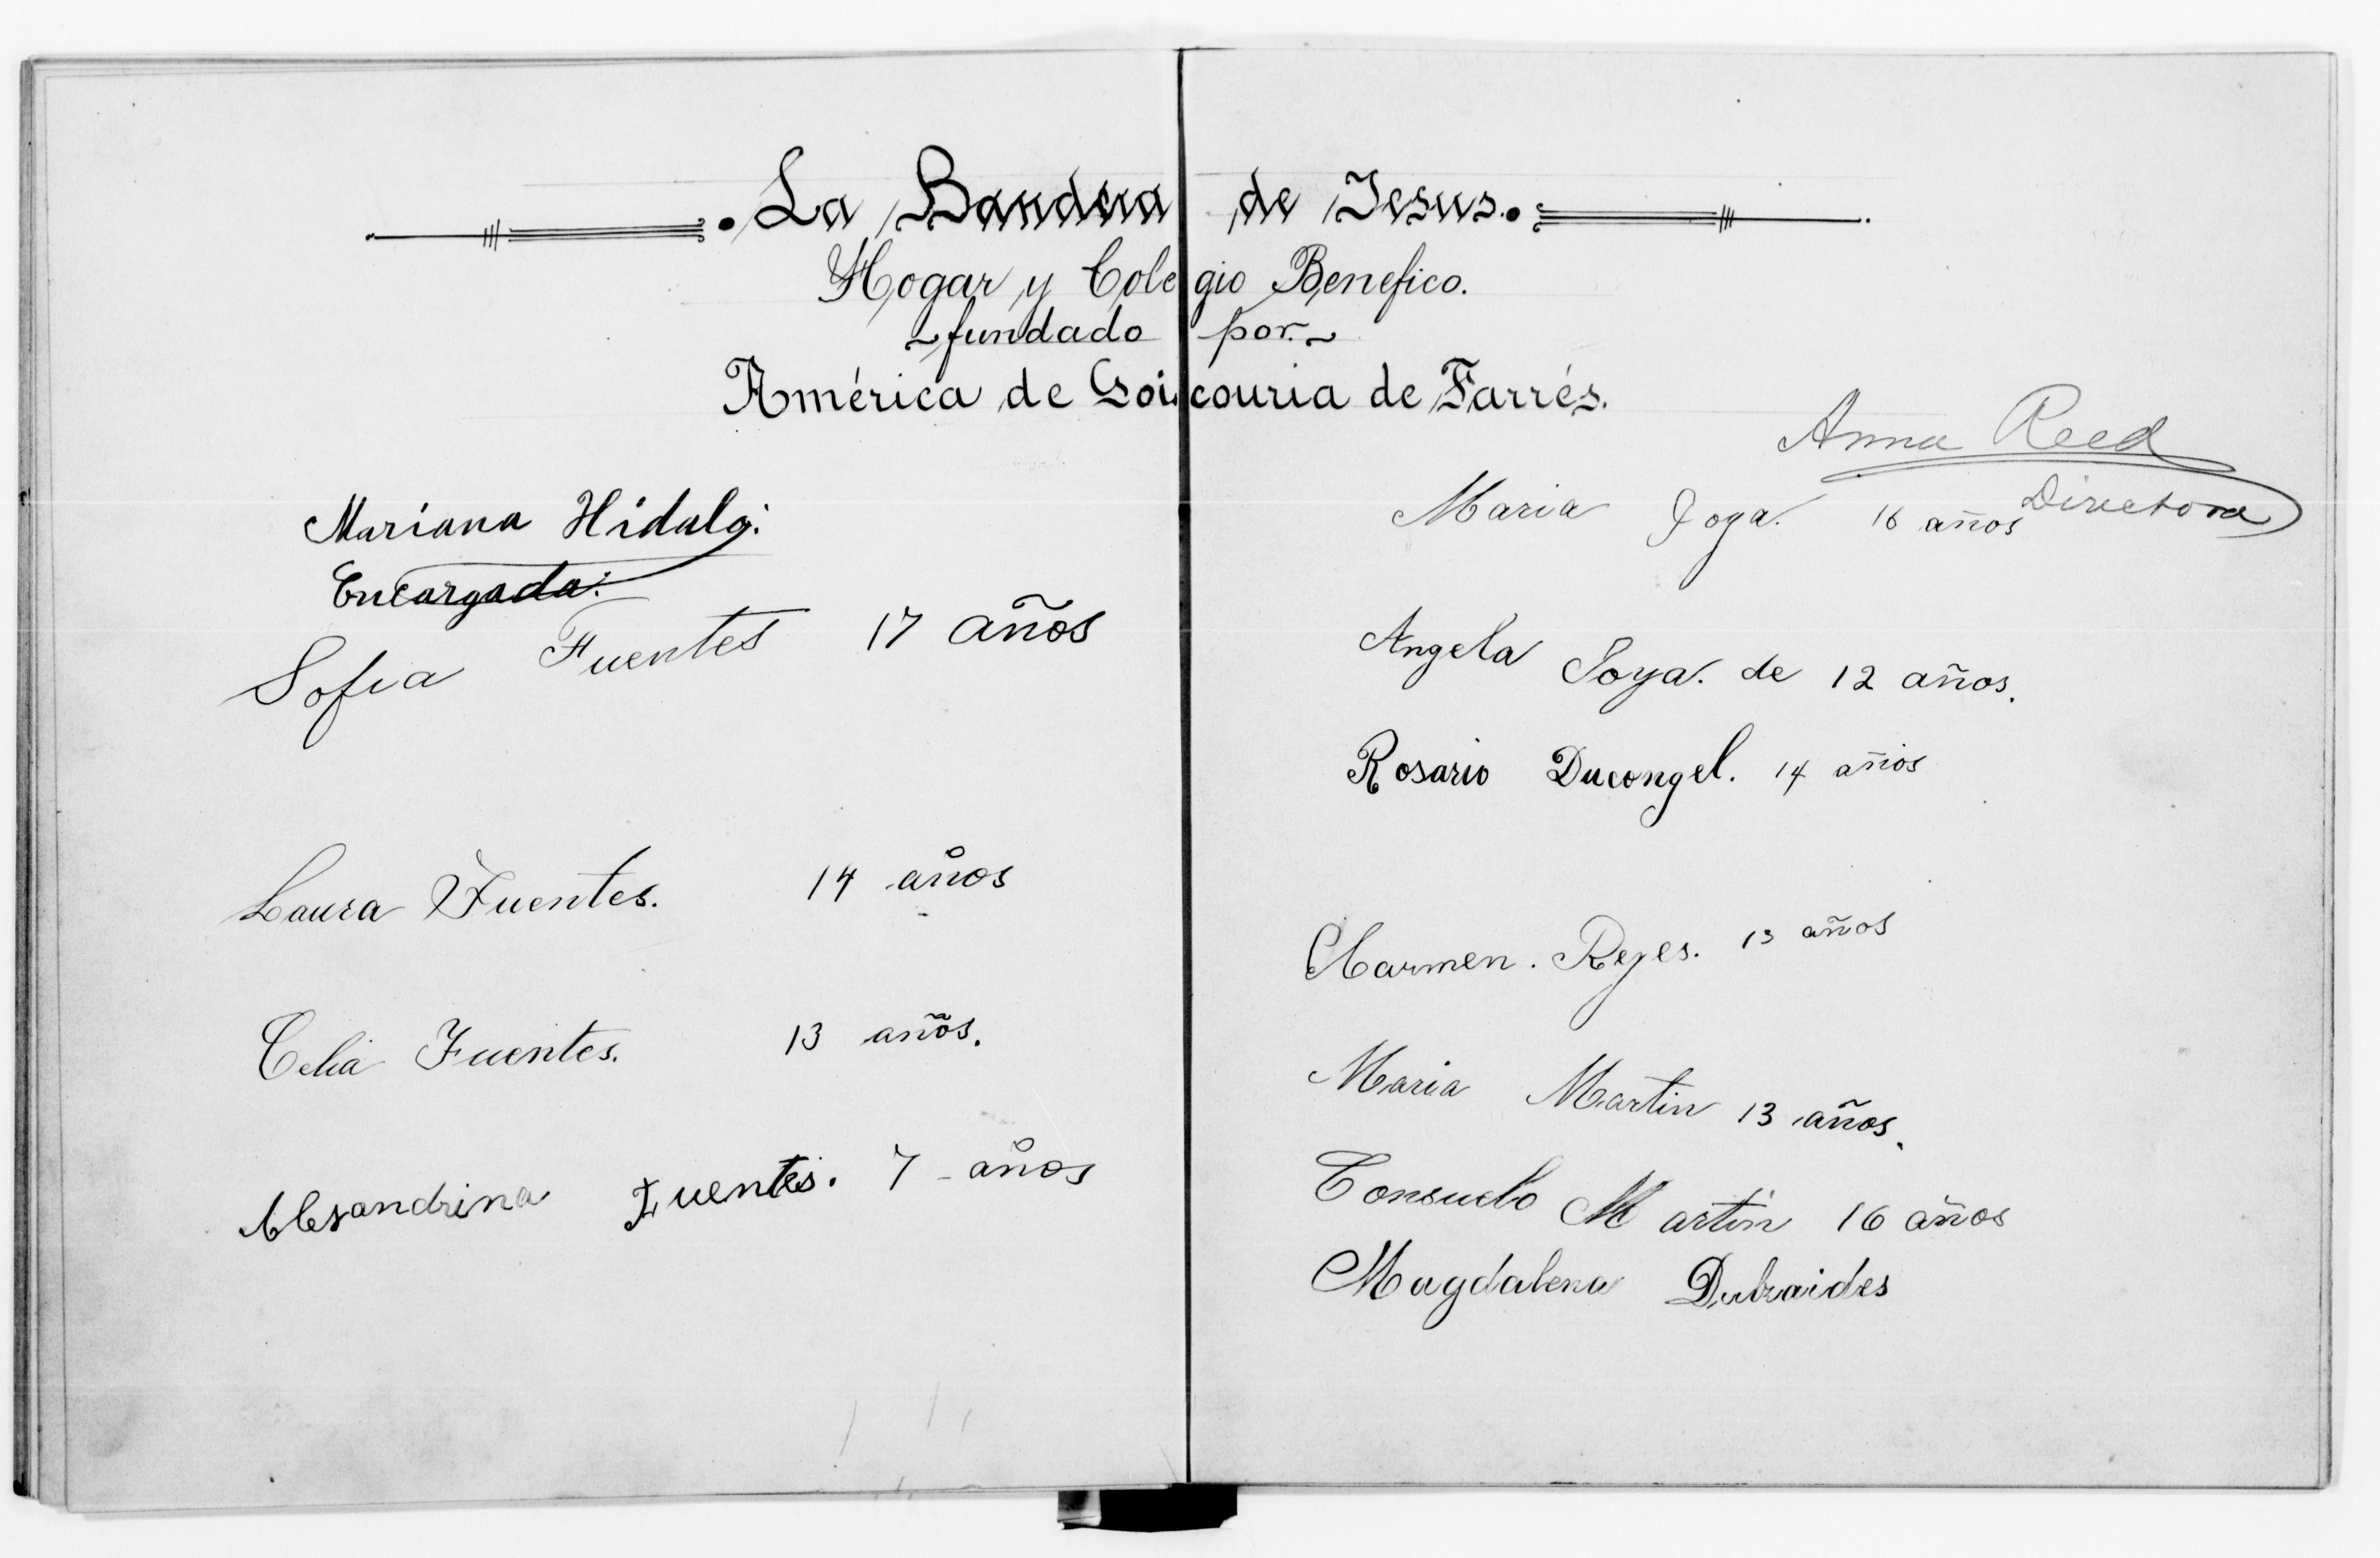 La Bandera de Jesus.
Hogar y Colegio Benefico.
fundado por
América de Goicouria de Farrés.
Mariana Hidalgo:
Encargada:
Sofia Fuentes 17 años
Laura Fuentes. 14 años
Celia Fuentes. 13 años.
Alesandrina Fuentes. 7 años
Anna Reed
Directora
Maria Joya. 16 años
Angela Joya. de 12 años.
Rosario Ducongel. 14 años
Carmen. Reyes. 13 años
Maria Martin 13 años.
Consuelo Martin 16 años
Magdalena